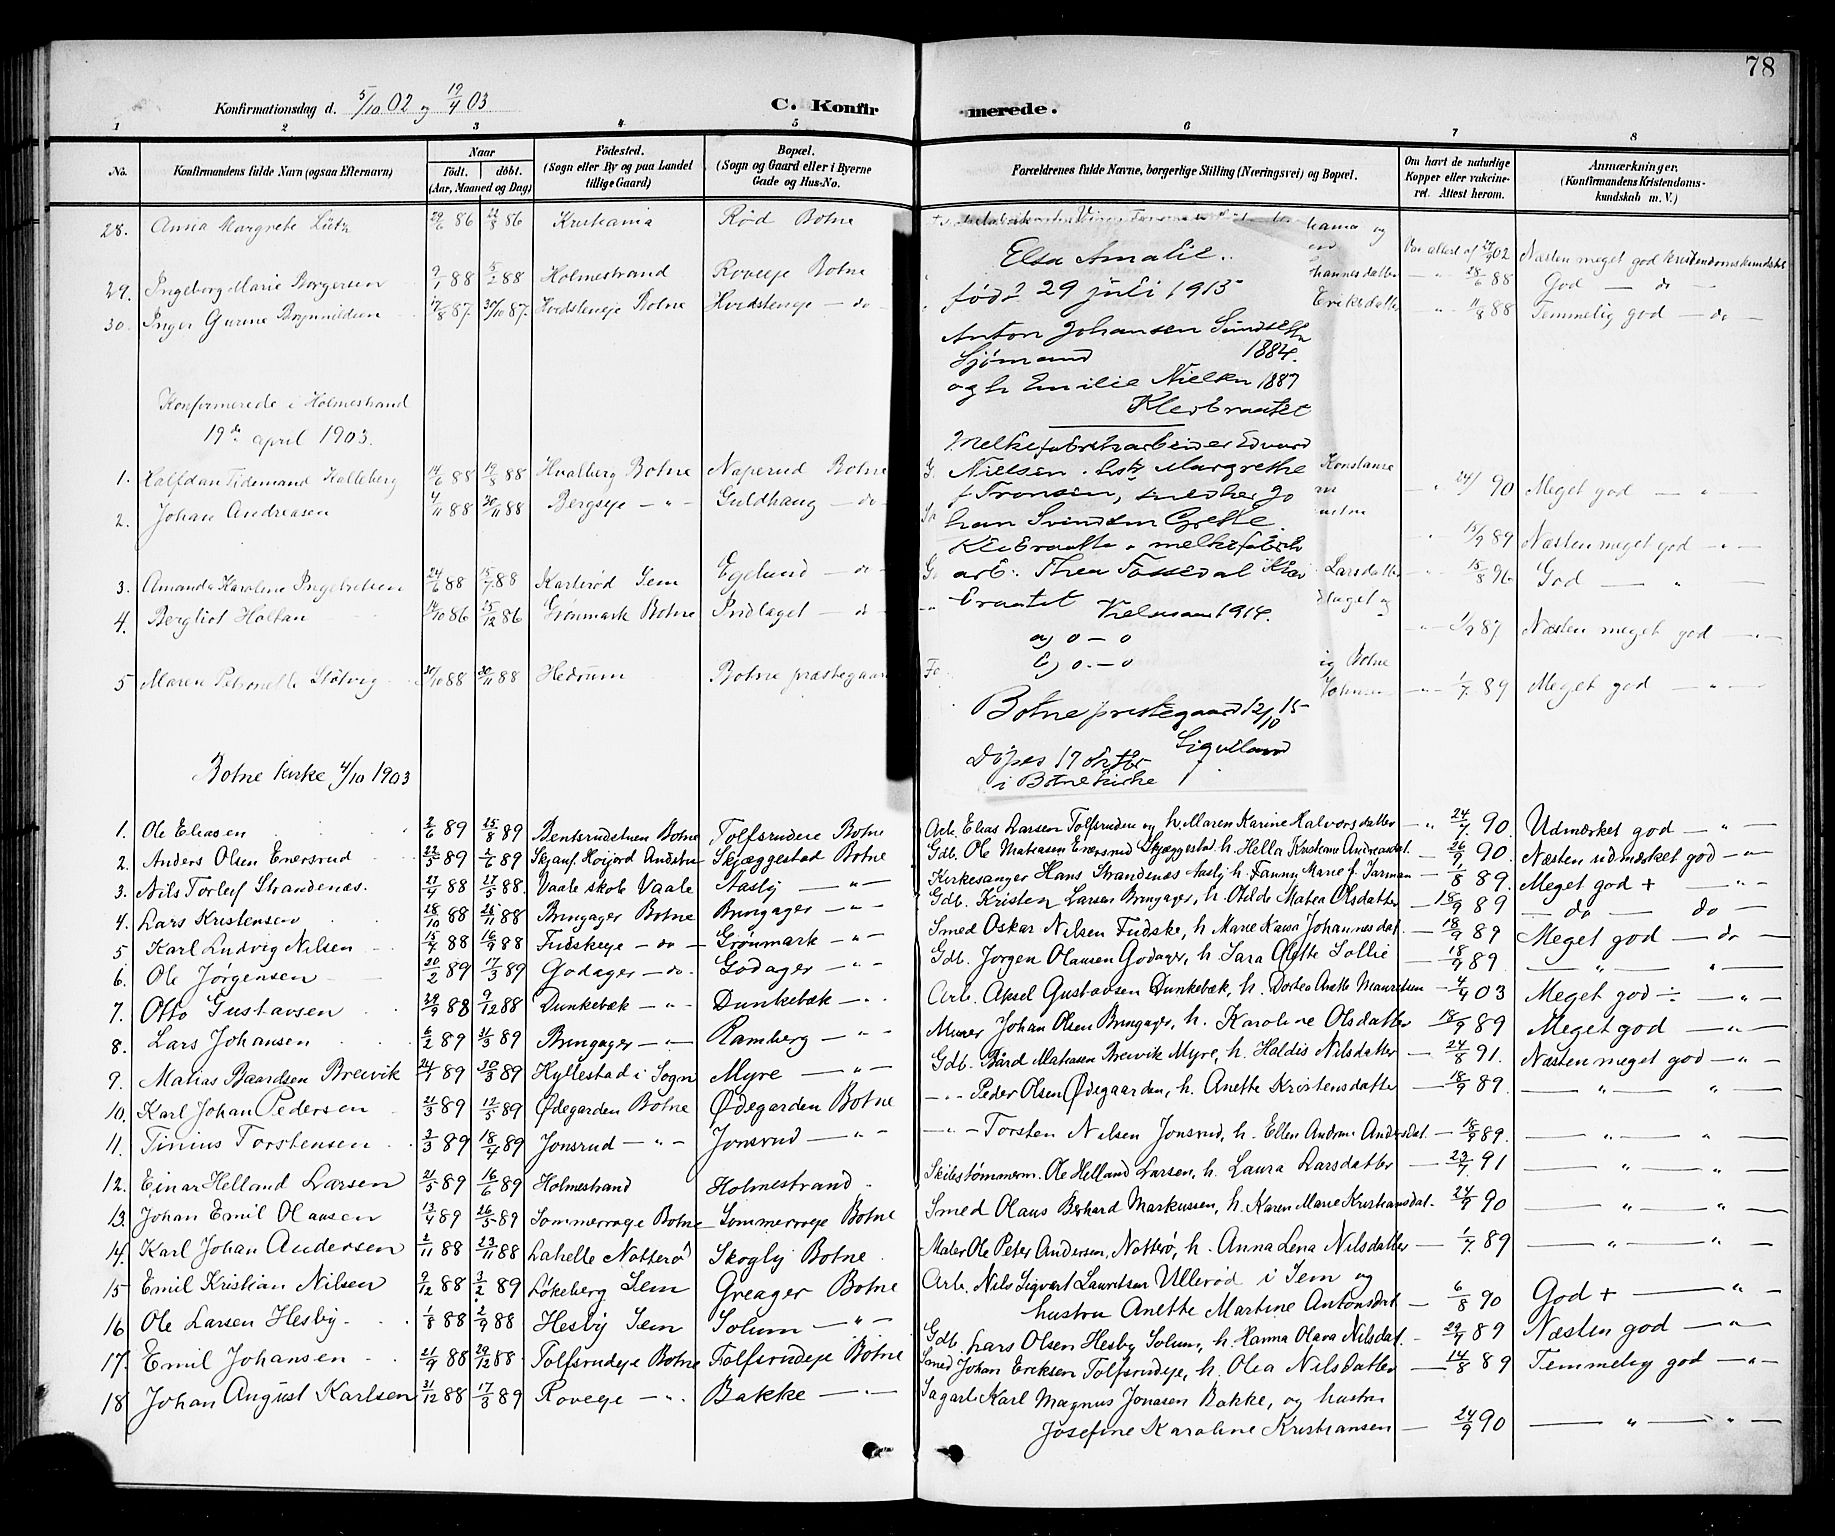 78
Konfirmationsdag d. 5/10 02 og 19/4 03
C. Konfirmerede.
1 2 3 4 5 6 7 8
No.
Konfirmandens fulde Navn (ogsaa Efternavn)
Naar
født. døbt.
(Aar, Maaned og Dag)
Fødested.
(Sogn eller By og paa Landet
tillige Gaard)
Bopæl.
(Sogn og Gaard eller i Byerne
Gade og Hus-No.
Forældrenes fulde Navne, borgerlige Stilling (Næringsvei) og Bopæl.
Om havt de naturlige
Kopper eller vaccine-
ret. Attest herom.
Anmærkninger.
(Konfirmandens Kristendoms-
kundskab m. V.)
28. Anna Margrete Lütz 29/6 86 22/8 86 Kristiania Rød Botne 02 Næsten meget god kristendomskundskab
29. Ingeborg Marie Borgersen 9/1 88 5/2 88 Holmestrand Roveje Botne hannesdatter 28/6 88 God — do —
30. Inger Gurine Brynnildsen 17/8 87 30/10 87 Hvidsteneje Botne Hvidsteneje — do Eriksdatter 11/8 88 Temmelig god — do —
Elsa Amalie.
født 29 juli 1915
Anton Johansen
Sjømand 1884.
og h Emilie Nielsen 1887
Kleivbraatet
Melkefabrikarbeider Edvard
Nielsen. hst. Margrethe
f Tronsen, snedker Jo
han Svindsen Grette
Kleivbraatte, melkefabrik
arb. Thea Fossedal Klev
braatet
Vielsesaar 1914.
a) 0 — 0
b) 0 — 0
Botne prestegaard 12/10 15
Sigveland
Døpes 17 oktbr
i Botne kirke
Konfirmerede i Holmestrand
19de april 1903.
1. Halfdan Tidemand Kalleberg 14/6 88 19/8 88 Hvalberg Botne Naperud Botne Konstanse 90 Meget god — " —
2. Johan Andreasen 4/11 88 30/11 88 Bergseje — " — Guldhaug — do — 15/9 89 Næsten meget god — " —
3. Amanda Karoline Ingebretsen 24/6 88 15/7 88 Karlsrød Sem Egelund — do — Larsdatter 15/8 96 God — "
4. Bergliot Holtan 14/10 86 15/12 86 Grønmark Botne Indlaget — do — dlaget og 1/9 87 Næsten meget god — " —
5 Maren Petronelle Støtvig 30/10 88 30/11 88 Hedrum Botne præstegaard ig Botne Johnsen 1/7 89 Meget god — " —
Botne kirke 4/10 1903
1. Ole Eliasen 2/6 89 25/8 89 Bentsrudstuen Botne Tolfsrudeie Botne Arb. Elias Larsen Tolfsrudeie og h. Maren Karine Halvorsdatter 24/7 90. Udmærket god — " —
2. Anders Olsen Enersrud 22/5 89 2/6 89 Skjauf Høijord Andebu Skjæggestad Botne Gdb. Ole Mateasen Enersrud Skjæggestad h. Hella Kristiane Andreasdat. 26/9 90 Næsten udmærket god — " —
3. Nils Torleif Strandenæs. 27/4 88 27/5 88. Vaale skole Vaale Aasly — " — Kirkesanger Hans Strandenæs Aasly h. Fanny Marie f. Jarmann 1/8 89. Meget god + — " —
4. Lars Kristensen 28/10 88 25/11 88 Bringager Botne Bringager — " — Gdb. Kristen Larsen Bringager, h. Otilde Matea Olsdatter 18/9 89 — do — do —
5 Karl Ludvig Nilsen 15/7 88 16/9 88 Fudskeje — do — Grønmark — " — Smed Oskar Nilsen Fudske, h Marie Kaisa Johannesdat. 18/9 89 Meget god — do —
6. Ole Jørgensen 20/2 89 17/3 89 Godager — do. Godager — " — Gdb. Jørgen Olausen Godager, h. Sara Olette Sollie 18/9 89 — " — " —
7. Otto Gustavsen 29/9 88 9/12 88 Dunkebæk — " — Dunkebæk — " . Arb. Aksel Gustavsen Dunkebæk, h. Dortea Anette Mauritsen 4/9 03 Meget god ÷ — " —
8. Lars Johansen 6/2 89 31/3 89 Bringager — " — Ramberg — " — Murer Johan Olsen Bringager, h. Karoline Olsdatter 18/9 89 Meget god — " —
9. Matias Baardsen Breivik 24/1 89 30/3 89 Hyllestad i Sogn Myre — " — Gdb. Bård Matiasen Breivik Myre, h. Haldis Nilsdatter 24/8 91. Næsten meget god — " —
10. Karl Johan Pedersen 21/3 89 12/5 89 Ødegarden Botne Ødegarden Botne — " — Peder Olsen Ødegaarden, h. Anette Kristensdatter 18/9 89. — " — " —
11. Tinius Torstensen 3/3 89 18/4 89 Jonsrud — " — Jonsrud — " — — " — Torsten Nilsen Jonsrud, h. Ellen Andrine Andersdat. 18/9 89. — " — " —
12. Einar Helland Larsen 21/5 89 16/6 89 Holmestrand Holmestrand . Skibstømmerm. Ole Helland Larsen, h. Laura Larsdatter 23/7 91 — " — " —
13. Johan Emil Olausen 13/4 89 26/5 89 Sommerroge Botne Sommerroge Botne Smed Olaus Berhard Markussen, h. Karen Marie Kristiansdat. 24/9 90 — " — " —
14. Karl Johan Andersen 2/11 88 23/11 88 Lahelle Nøtterø Skogly Botne Maler Ole Peter Andersen, Nøtterø, h. Anna Lena Nilsdatter 1/7 89 — " — " —
15 Emil Kristian Nilsen 9/12 88 3/2 89 Løkeberg Sem Greager Botne Arb. Nils Sigvart Lauritsen Ullerød i Sem og
hustru Anette Martine Antonsdat 6/8 90 God + — " —
16 Ole Larsen Hesby 1/8 88 2/9 88 Hesby Sem Solum — " — Gdb. Lars Olsen Hesby Solum, h. Hanna Olava Nilsdat. 29/9 89 Næsten god — " —
17. Emil Johansen 21/9 88 29/12 88 Tolfsrudeje Botne Tolfsrudeje Botne Smed Johan Eriksen Tolfsrudeje, h. Olea Nilsdatter 14/8 89 Temmelig god — " —
18 Johan August Karlsen 31/12 88 17/3 89 Roveje — " . Bakke — " — Sagarb Karl Magnus Jonasen Bakke, og hustru
Josefine Karoline Kristiansen 24/9 90 — " — " —